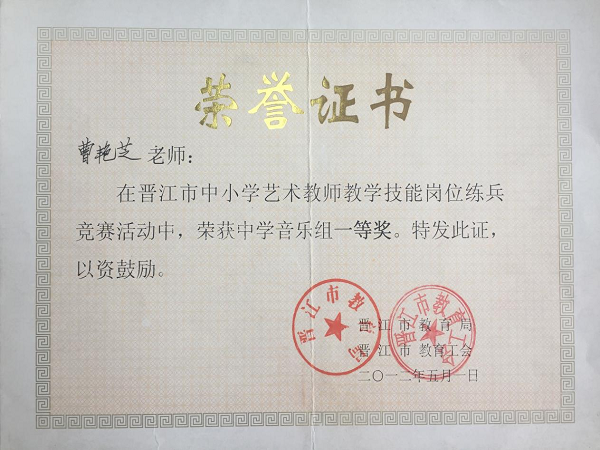 荣誉证书
曹艳芝老师:
在晋江市中小学艺术教师教学技能岗位练兵
竞赛活动中，荣获中学音乐组一等奖。特发此证，
以资鼓励。
晋江市教育局
晋江市教育工会
晋江市教育局
晋江市教育工会
二〇一二年五月一日